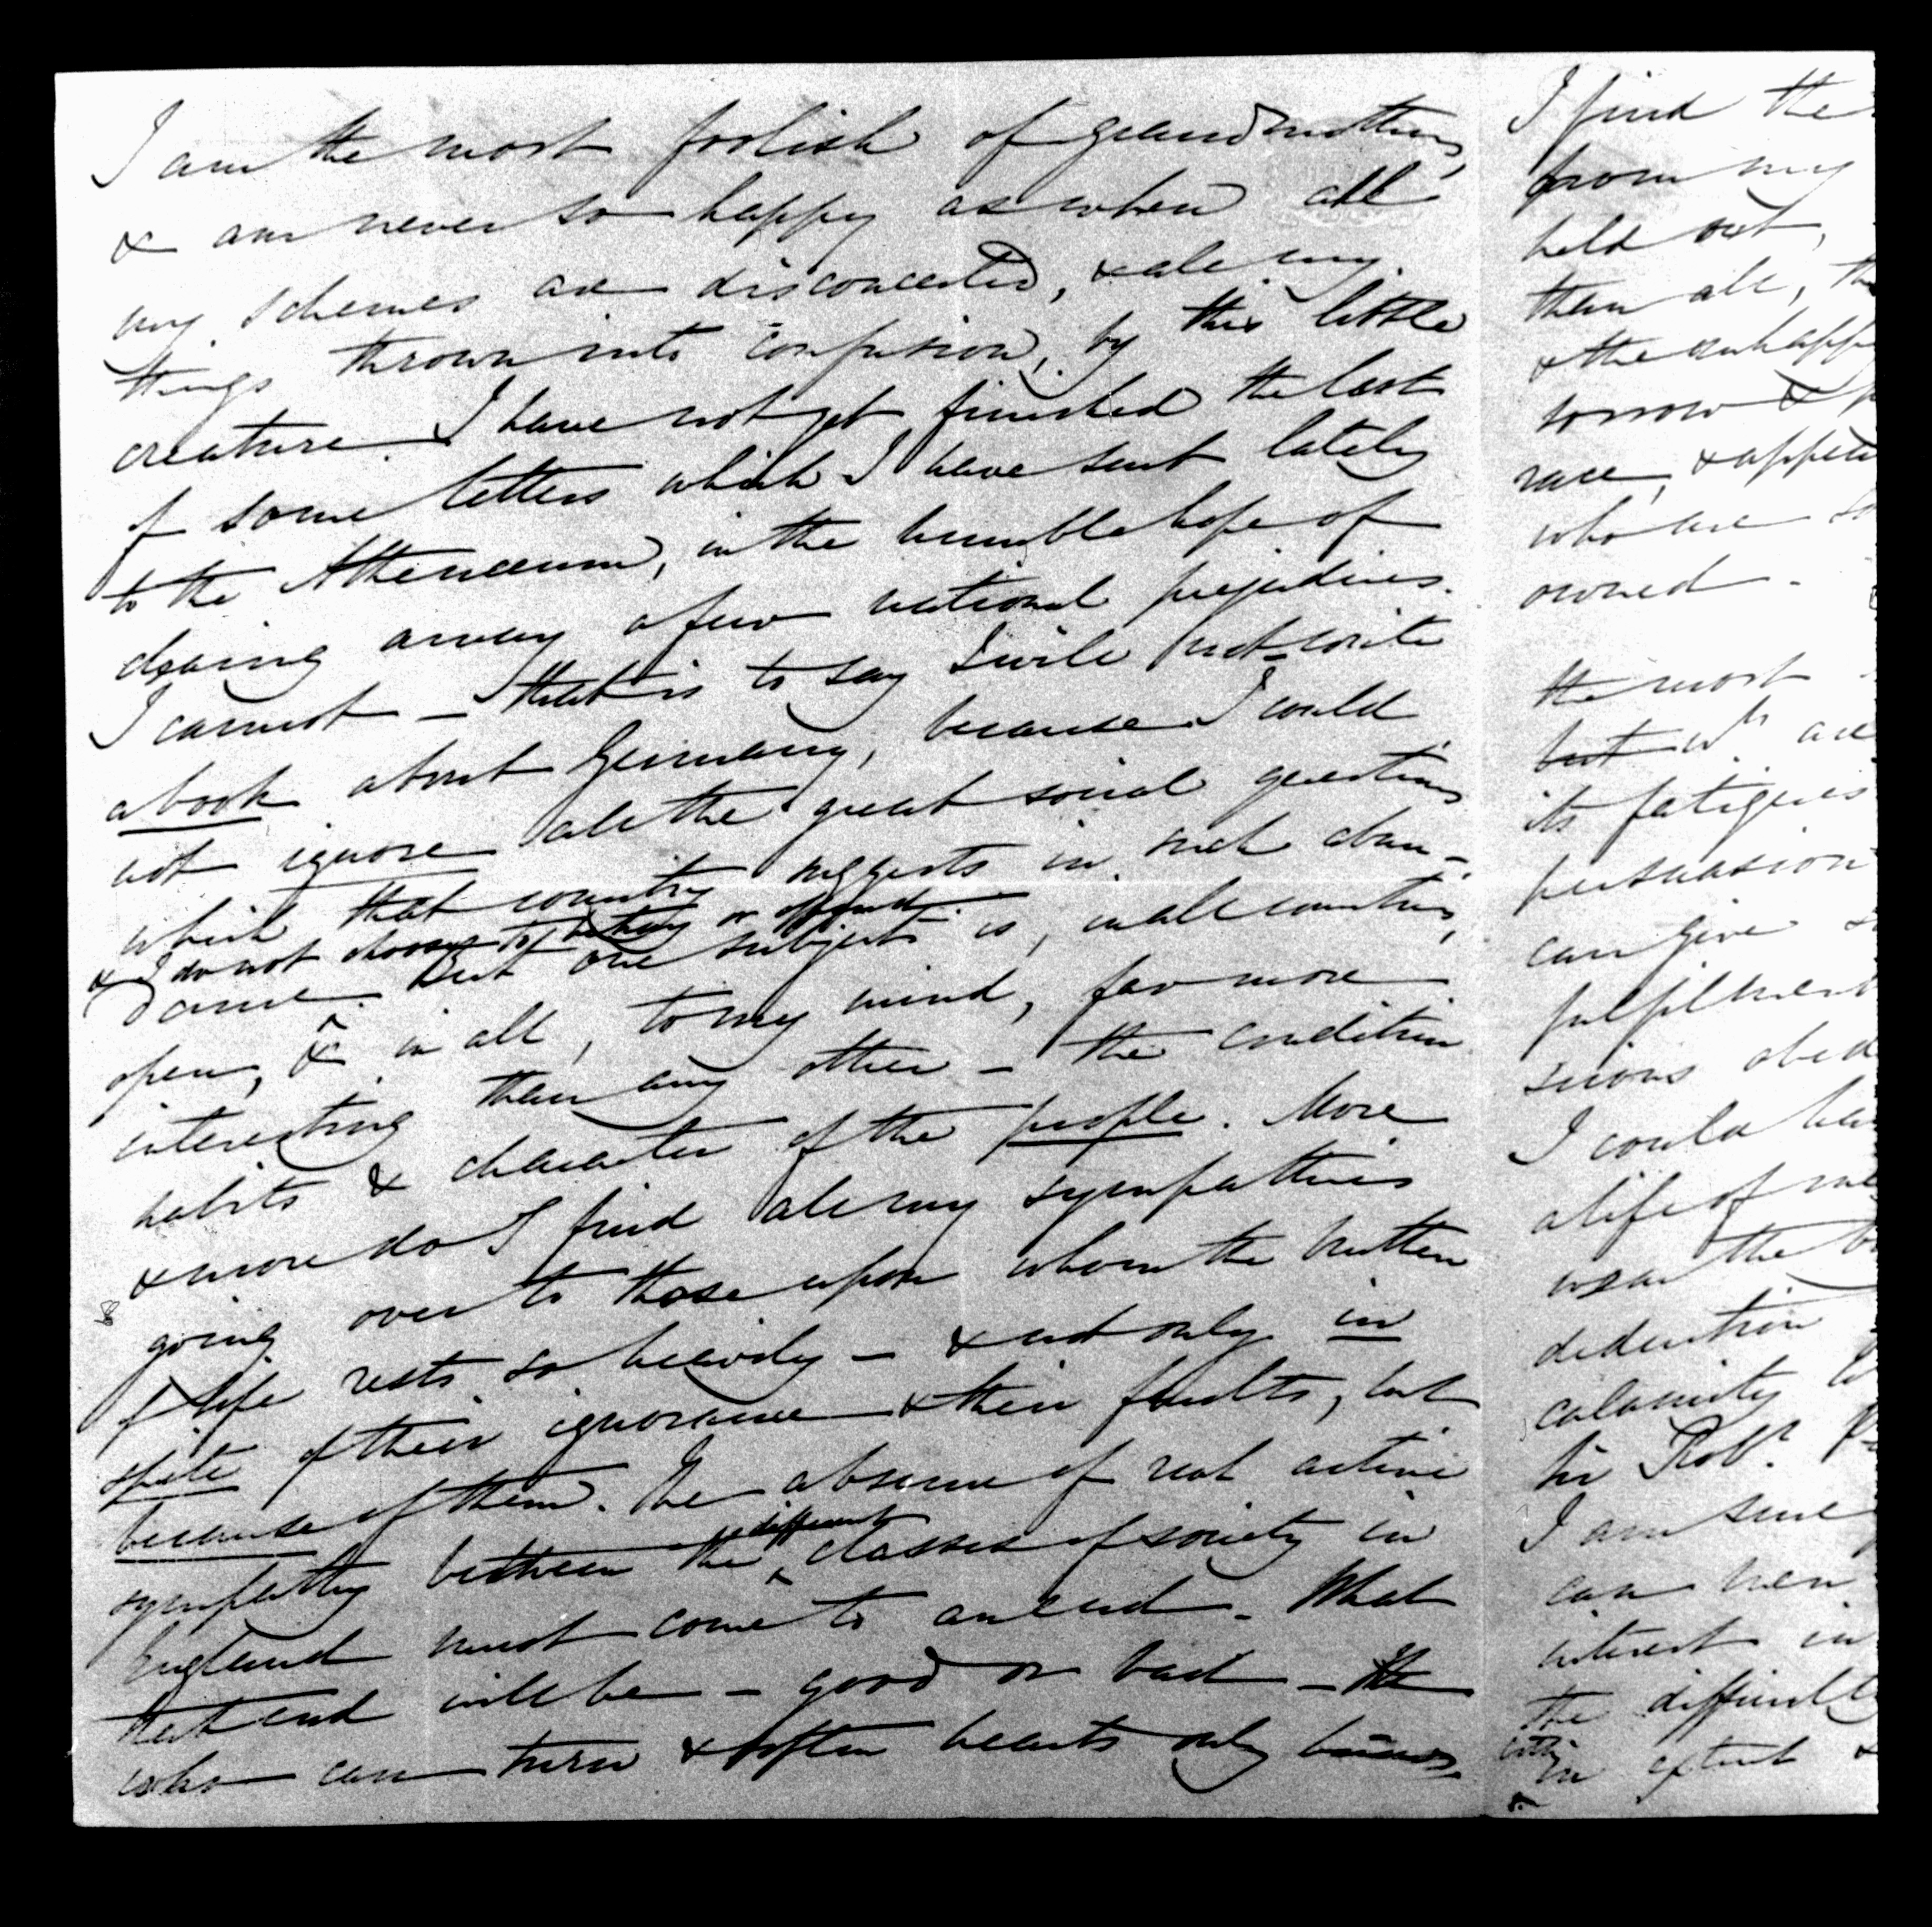 I am the most foolish of grandmothers,
& am never so happy as when all
my schemes are disconcerted, & all my
things thrown into confusion, by this little
creature. I have not yet finished the last
of some letters which I have sent lately
to the Athenæum, in the humble hope of
clearing away a few national prejudices.
I cannot – that is to say I will not write
a book about Germany, because I could
not ignore all the great social questions
which that country suggests in such abun-
& I do not choose to betray or offend.
dance. But one subject is, in all countries,
open, & in all, to my mind, far more
interesting than any other – the condition
habits & character of the people. More
& more do I find all my sympathies
going over to those upon whom the burthen
of life rests so heavily – & not only in
spite of their ignorance & their faults, but
because of them. The absence of real active
different
sympathy between the classes of society in
England must come to an end. What
that end will be – good or bad – He
who can turn & soften hearts only knows.
I find the
from my
held out,
than all, the
& the unhappy
sorrow &
race, &
who are so
owned –
the most
but wh are
its fatigues
persuasion
can give
fulfilment
sions
I could
a life of
wear the
calamity
Sir Robt.
I am sure
can
interest in
the
in extent &